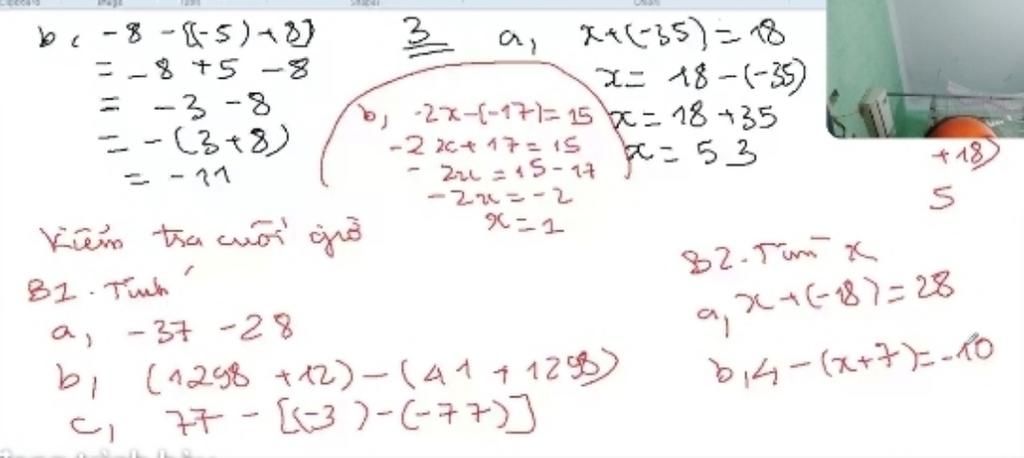 b, -8 - [(-5) + 8]
= -8 + 5 - 8
= -3 - 8
= -(3+8)
= -11
3 a, x+(-35) = 18
x = 18 - (-35)
x = 18 + 35
x = 53
b, -2x-(-17) = 15
-2x + 17 = 15
-2x = 15 - 17
-2x = -2
x = 1
+18)
5
Kiểm tra cuối giờ
B1. Tính
a, -37 - 28
b, (1298 + 12) - (41 + 1298)
c, 77 - [(-3) - (-77)]
B2. Tìm x
a, x + (-18) = 28
b, 4 - (x+7) = -10